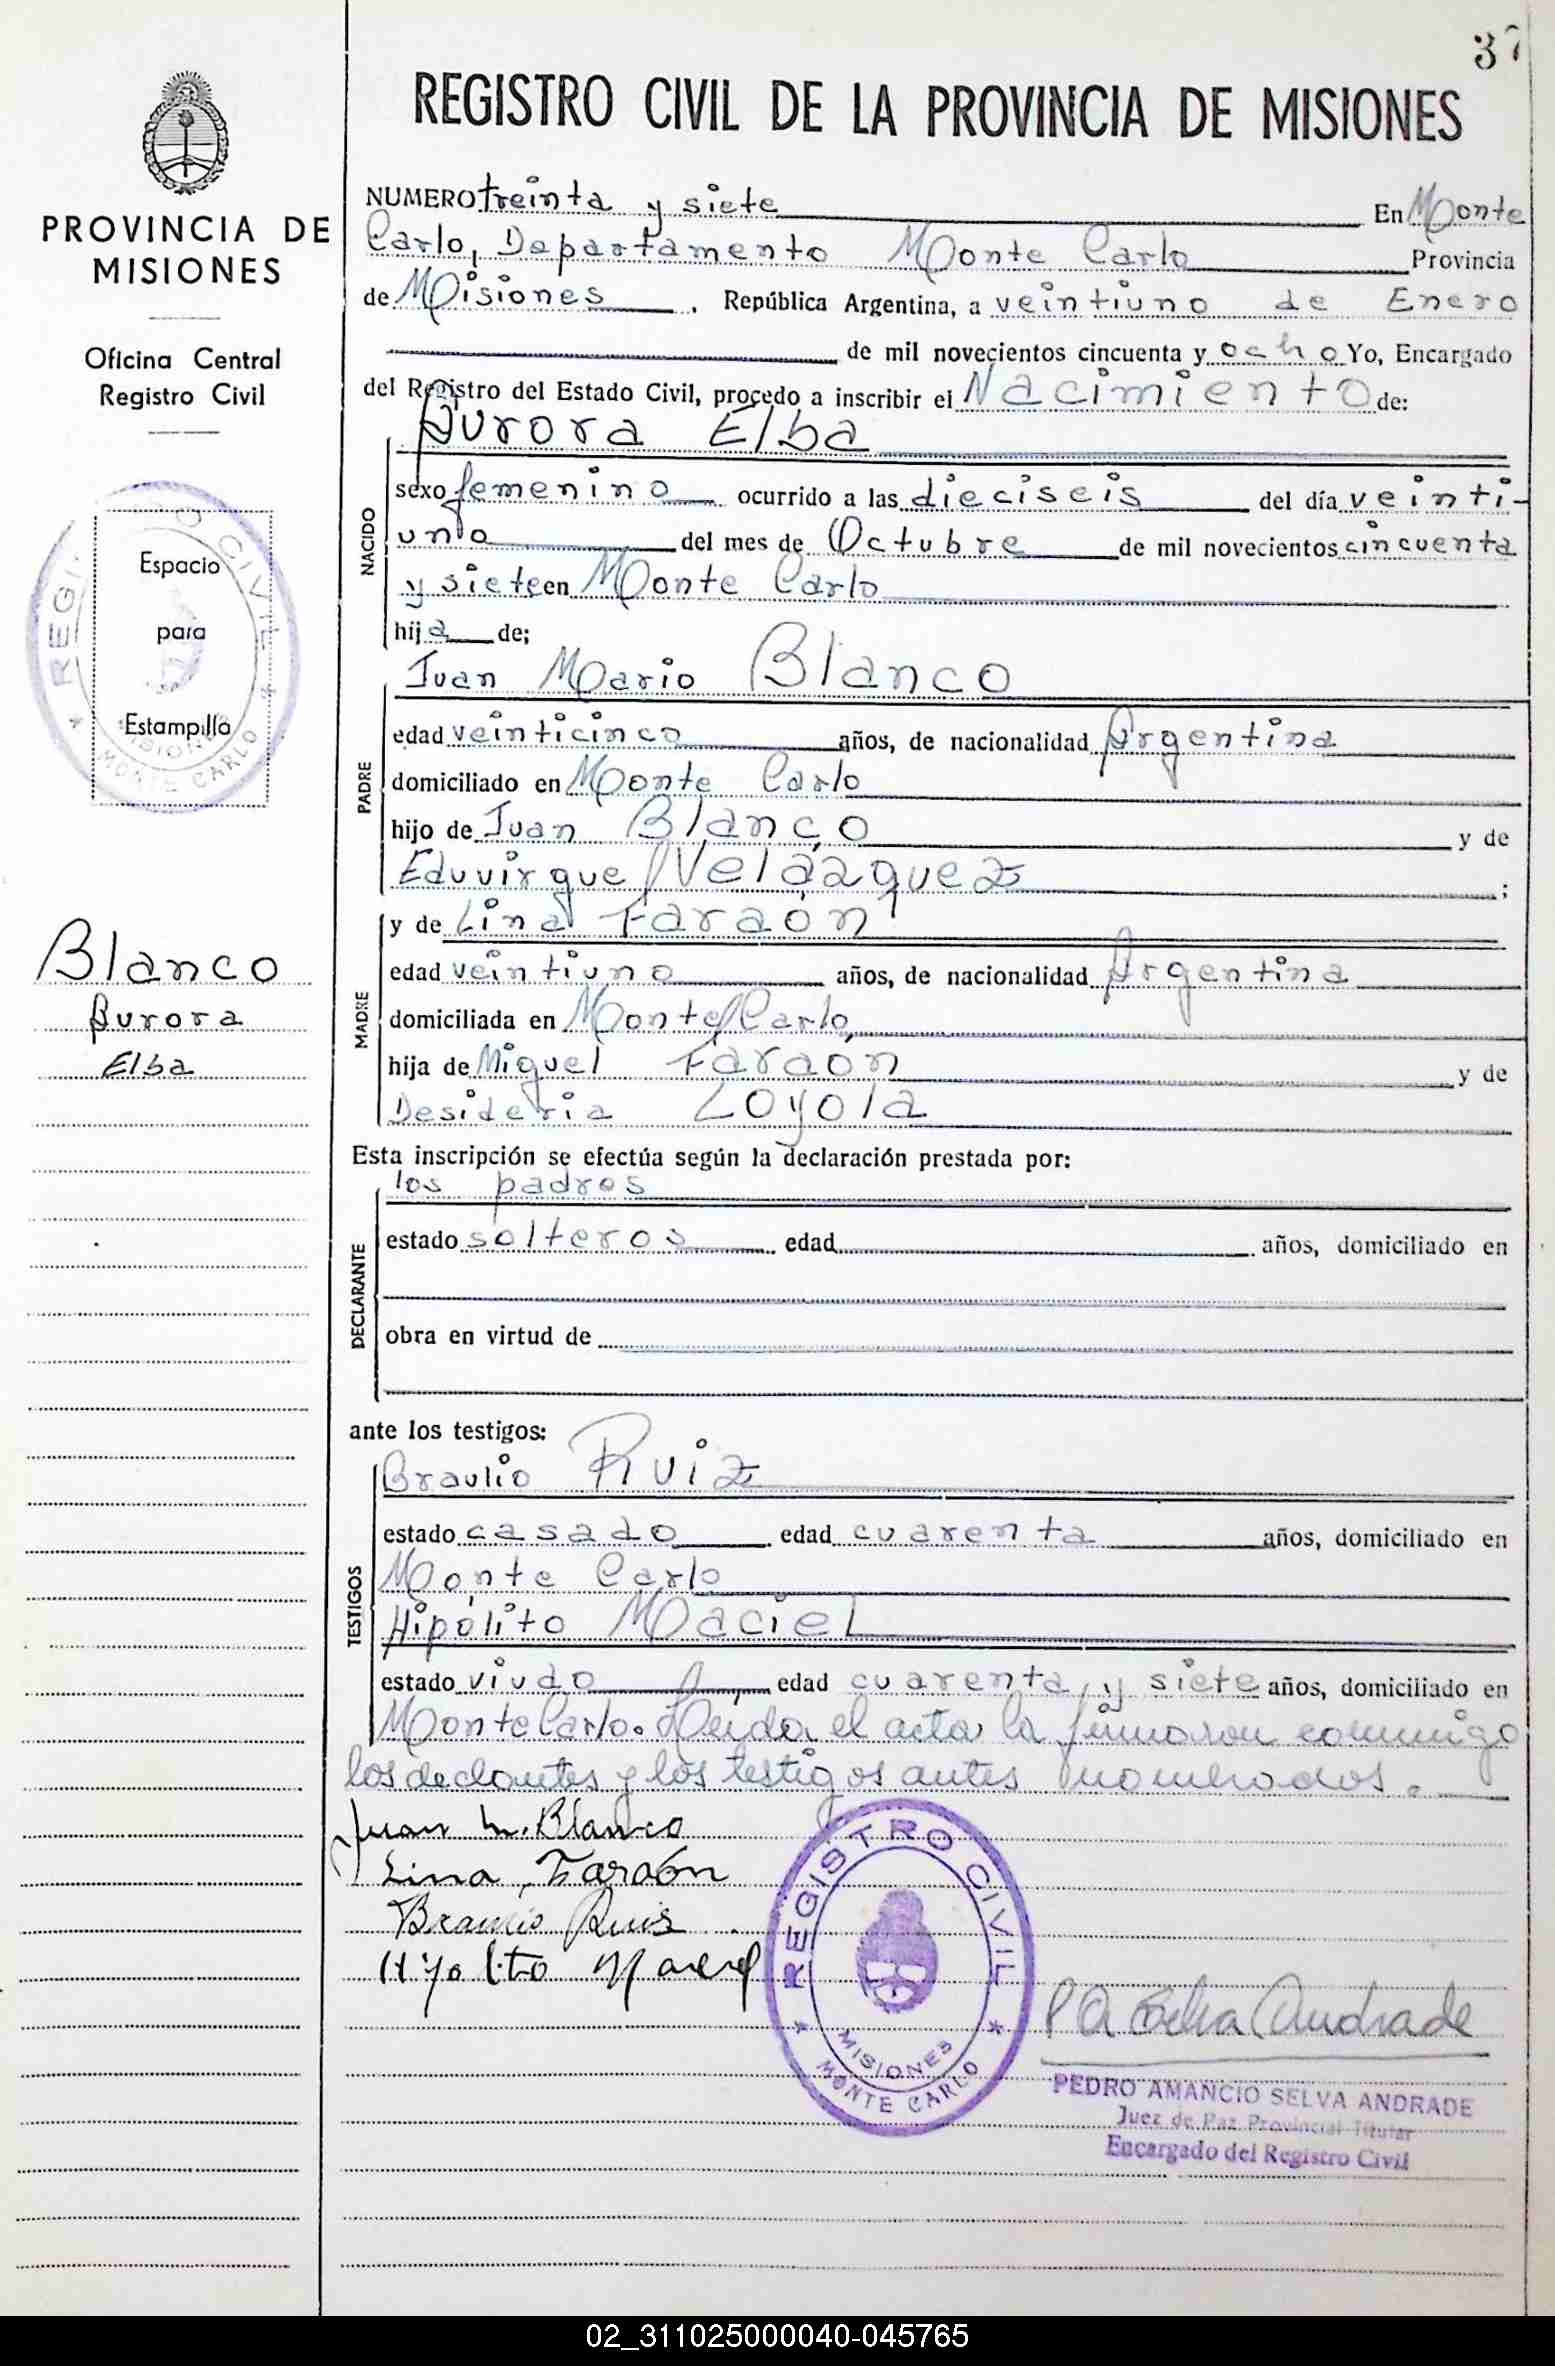 37
REGISTRO CIVIL DE LA PROVINCIA DE MISIONES
PROVINCIA DE
MISIONES
Oficina Central
Registro Civil
REGI CIVIL
Espacio
para
Estampilla
MISIONES
MONTE CARLO
Blanco
Aurora
Elba
NUMERO treinta y siete En Monte
Carlo, Departamento Monte Carlo Provincia
de Misiones, República Argentina, a veintiuno de Enero
de mil novecientos cincuenta y ocho Yo, Encargado
del Registro del Estado Civil, procedo a inscribir el Nacimiento de:
NACIDO
Aurora Elba
sexo femenino ocurrido a las dieciseis del día veinti-
uno del mes de Octubre de mil novecientos cincuenta
y siete en Monte Carlo
hija de;
PADRE
Juan Mario Blanco
edad veinticinco años, de nacionalidad Argentina
domiciliado en Monte Carlo
hijo de Juan Blanco y de
Eduvirgue Velázquez ;
MADRE
y de Lina Faraón
edad veintiuno años, de nacionalidad Argentina
domiciliada en Monte Carlo
hija de Miguel Faraón y de
Desideria Loyola
Esta inscripción se efectúa según la declaración prestada por:
DECLARANTE
los padres
estado solteros edad años, domiciliado en
obra en virtud de
ante los testigos:
TESTIGOS
Braulio Ruiz
estado casado edad cuarenta años, domiciliado en
Monte Carlo
Hipólito Maciel
estado viudo edad cuarenta y siete años, domiciliado en
Monte Carlo. Leida el acta la firmaron conmigo
los declantes y los testigos antes nombrados.
Juan M. Blanco
Lina Faraón
Braulio Ruis
REGISTRO CIVIL
MISIONES
MONTE CARLO
P A Selva Andrade
PEDRO AMANCIO SELVA ANDRADE
Juez de Paz Provincial Titular
Encargado del Registro Civil
02_311025000040-045765